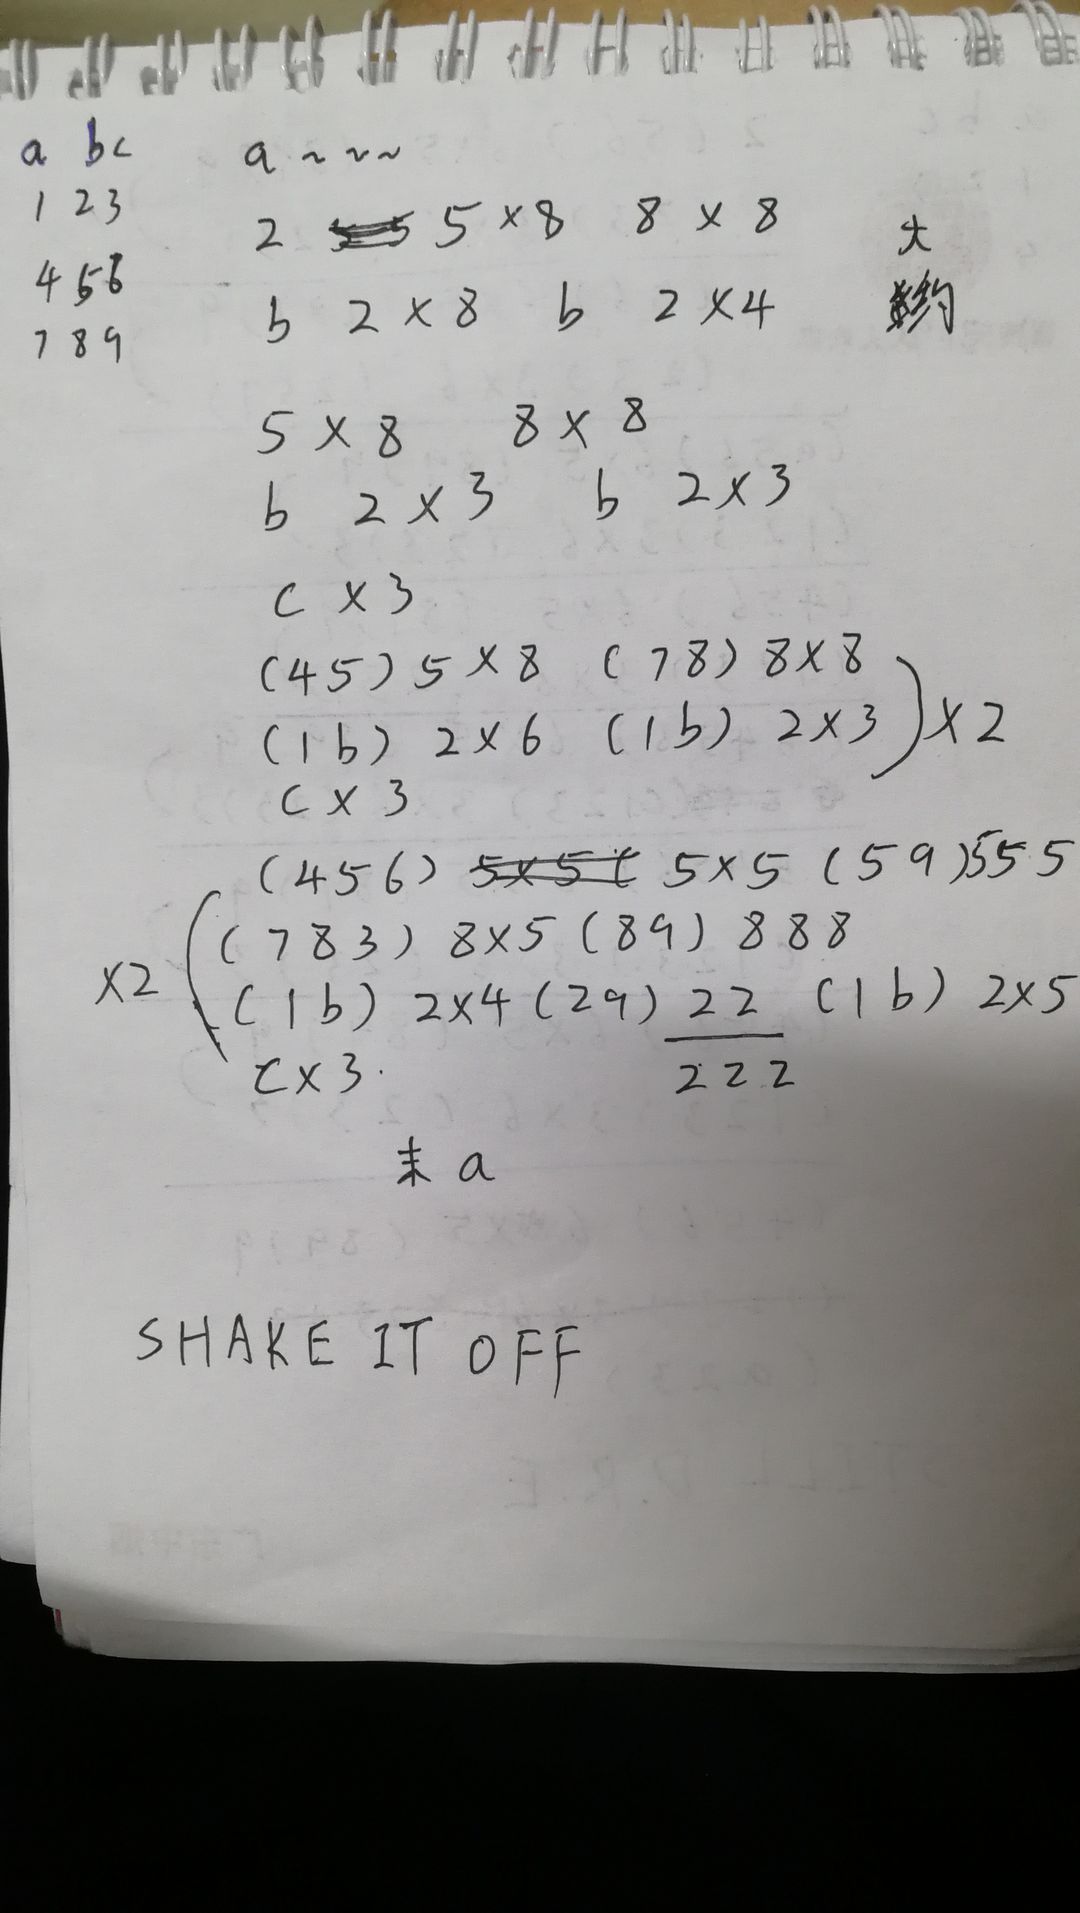 a bc
1 2 3
4 5 6
7 8 9
a ~ ~ ~
2 5×8 8×8
b 2×8 b 2×4
大
约
5×8 8×8
b 2×3 b 2×3
c×3
(45)5×8 (78)8×8
(1b) 2×6 (1b) 2×3 )×2
c×3
(456) 5×5 (59)555
(783) 8×5 (89) 888
×2 (1b) 2×4 (29) 22 (1b) 2×5
c×3. 222
末 a
SHAKE IT OFF